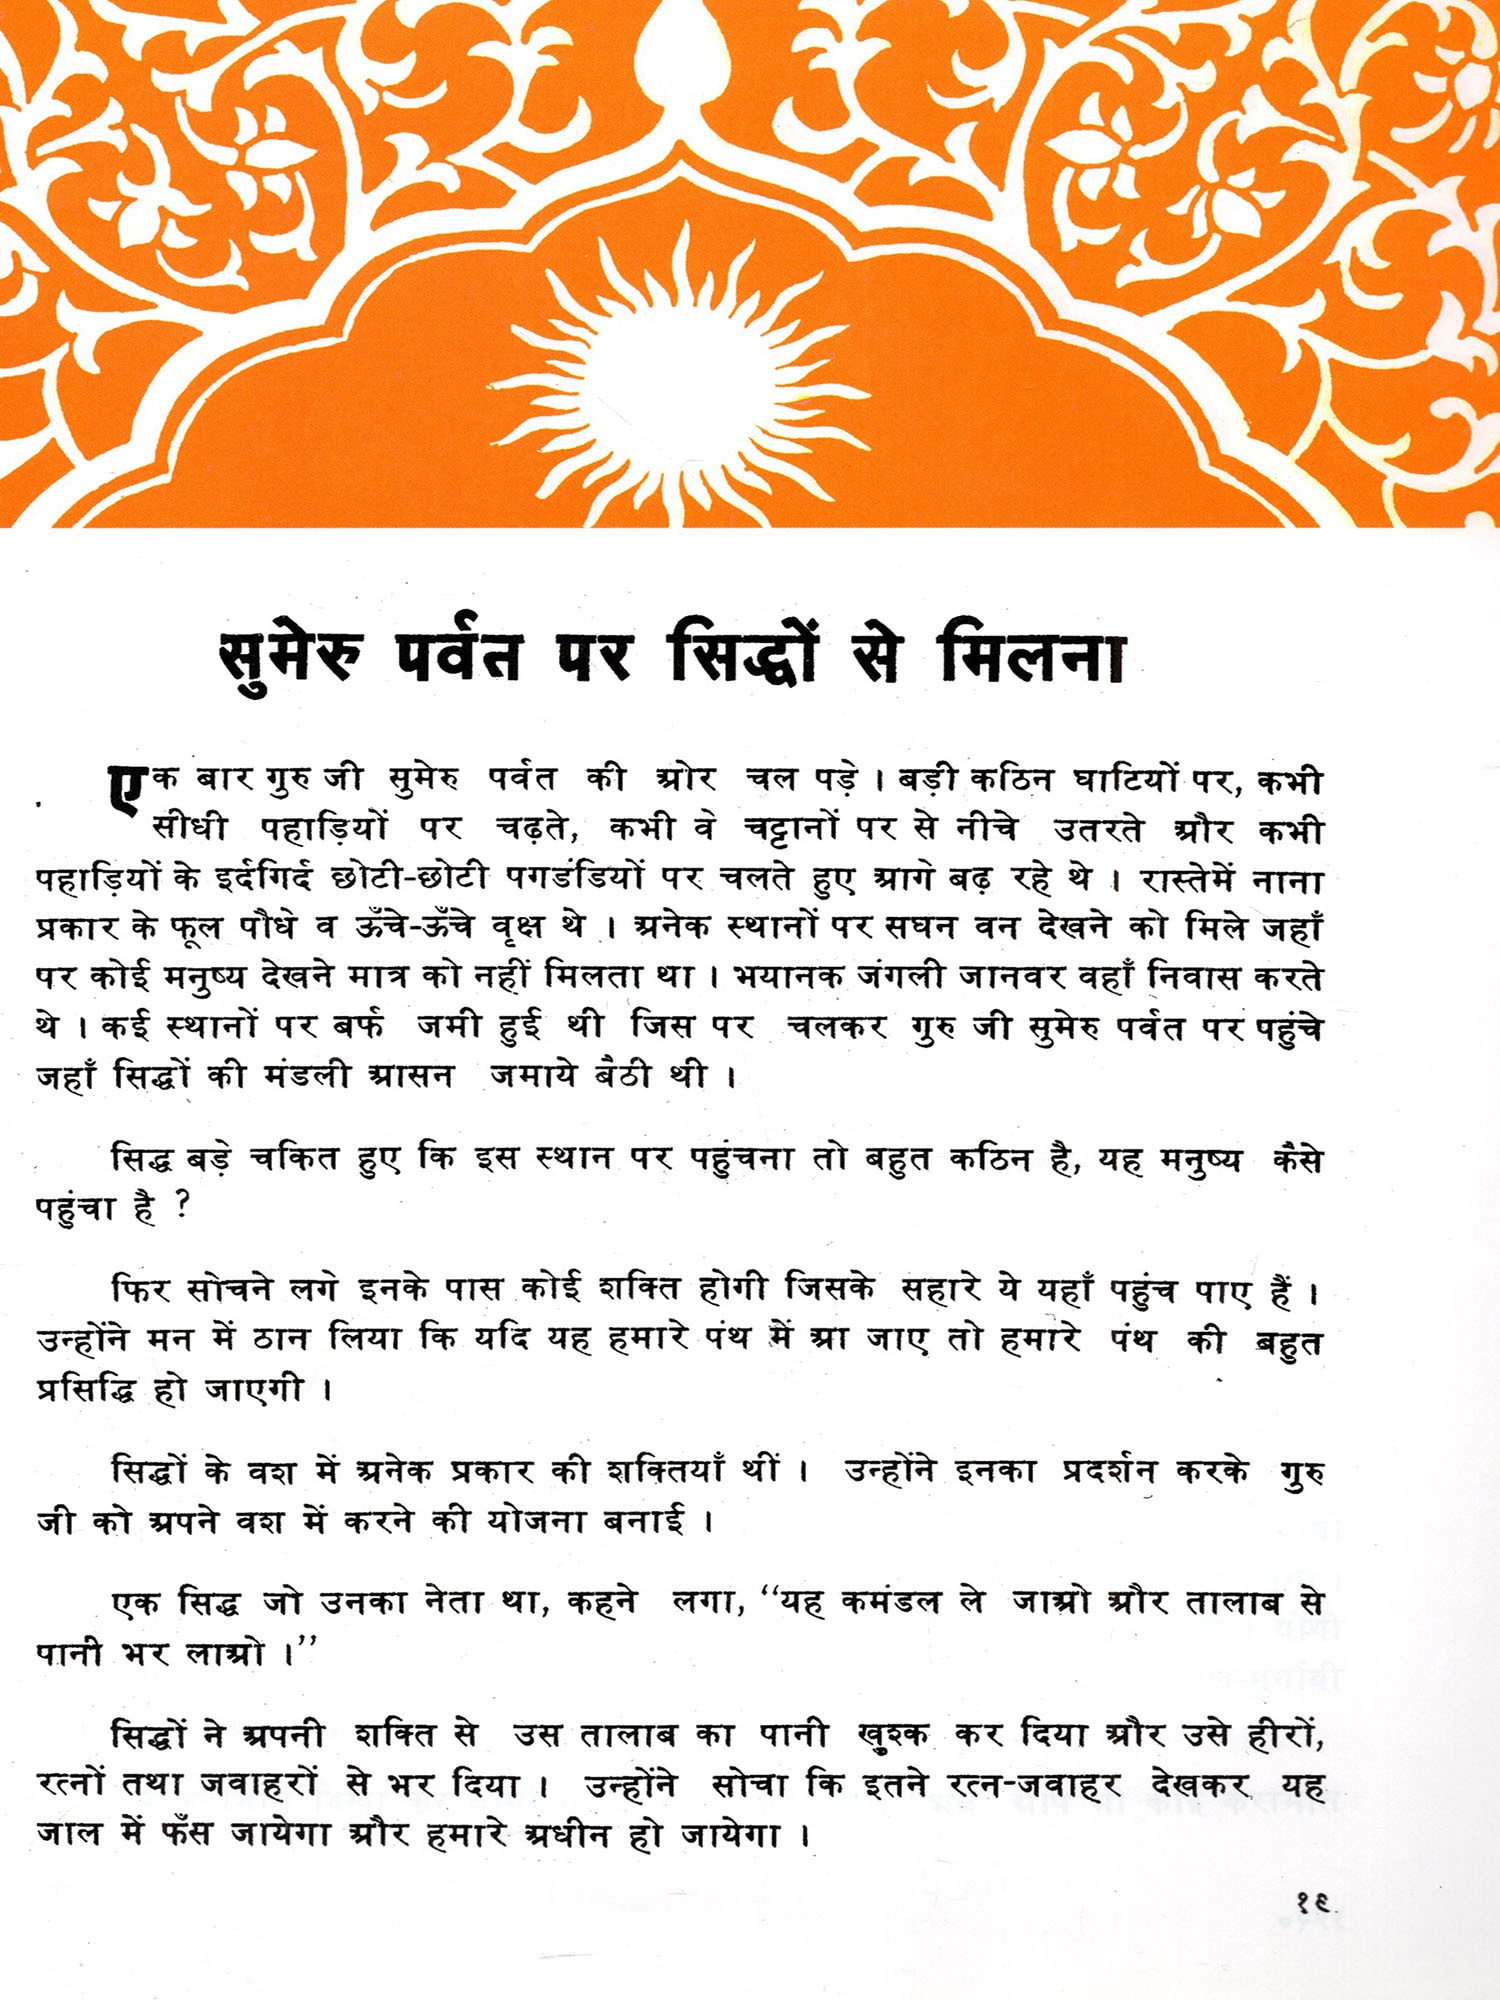 सुमेरु पर्वत पर सिद्धों से मिलना
एक बार गुरु जी सुमेरु पर्वत की ओर चल पड़े । बड़ी कठिन घाटियों पर, कभी
सीधी पहाड़ियों पर चढ़ते, कभी वे चट्टानों पर से नीचे उतरते और कभी
पहाड़ियों के इर्दगिर्द छोटी-छोटी पगडंडियों पर चलते हुए आगे बढ़ रहे थे । रास्तेमें नाना
प्रकार के फूल पौधे व ऊँचे-ऊँचे वृक्ष थे । अनेक स्थानों पर सघन वन देखने को मिले जहाँ
पर कोई मनुष्य देखने मात्र को नहीं मिलता था । भयानक जंगली जानवर वहाँ निवास करते
थे । कई स्थानों पर बर्फ जमी हुई थी जिस पर चलकर गुरु जी सुमेरु पर्वत पर पहुंचे
जहाँ सिद्धों की मंडली आसन जमाये बैठी थी ।
सिद्ध बड़े चकित हुए कि इस स्थान पर पहुंचना तो बहुत कठिन है, यह मनुष्य कैसे
पहुंचा है ?
फिर सोचने लगे इनके पास कोई शक्ति होगी जिसके सहारे ये यहाँ पहुंच पाए हैं ।
उन्होंने मन में ठान लिया कि यदि यह हमारे पंथ में आ जाए तो हमारे पंथ की बहुत
प्रसिद्धि हो जाएगी ।
सिद्धों के वश में अनेक प्रकार की शक्तियाँ थीं । उन्होंने इनका प्रदर्शन करके गुरु
जी को अपने वश में करने की योजना बनाई ।
एक सिद्ध जो उनका नेता था, कहने लगा, “यह कमंडल ले जाओ और तालाब से
पानी भर लाओ ।”
सिद्धों ने अपनी शक्ति से उस तालाब का पानी खुश्क कर दिया और उसे हीरों,
रत्नों तथा जवाहरों से भर दिया । उन्होंने सोचा कि इतने रत्न-जवाहर देखकर यह
जाल में फँस जायेगा और हमारे अधीन हो जायेगा ।
१९